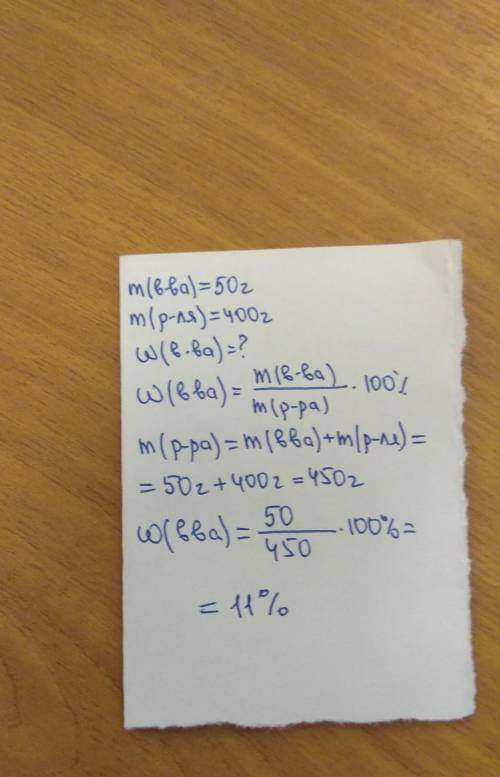 m(в-ва)=50г
m(р-ля)=400г
ω(в-ва)=?
ω(вва)= m(в-ва)/m(р-ра) · 100%
m(р-ра)=m(вва)+m(р-ля)=
=50г+400г=450г
ω(вва)= 50/450 ·100%=
= 11%